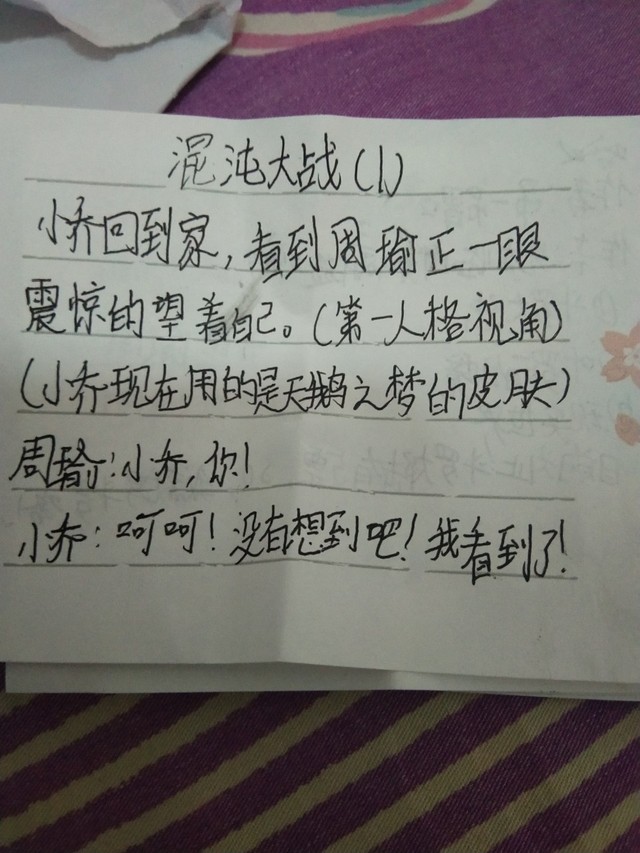 混沌大战(1)
小乔回到家,看到周瑜正一眼
震惊的望着自己。(第一人格视角)
(小乔现在用的是天鹅之梦的皮肤)
周瑜:小乔,你!
小乔:呵呵!没有想到吧!我看到了!